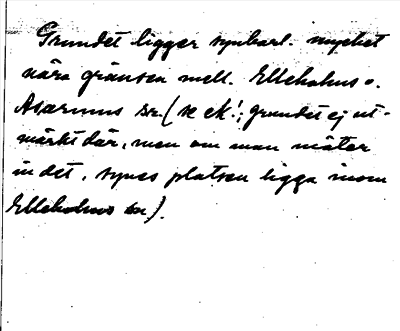 Grundet ligger synbarl. mycket
nära gränsen mell. Elleholms o.
Asarums sn. (se ek.; grundet ej ut-
märkt där, men om man mäter
in det, synes platsen ligga inom
Elleholms sn).